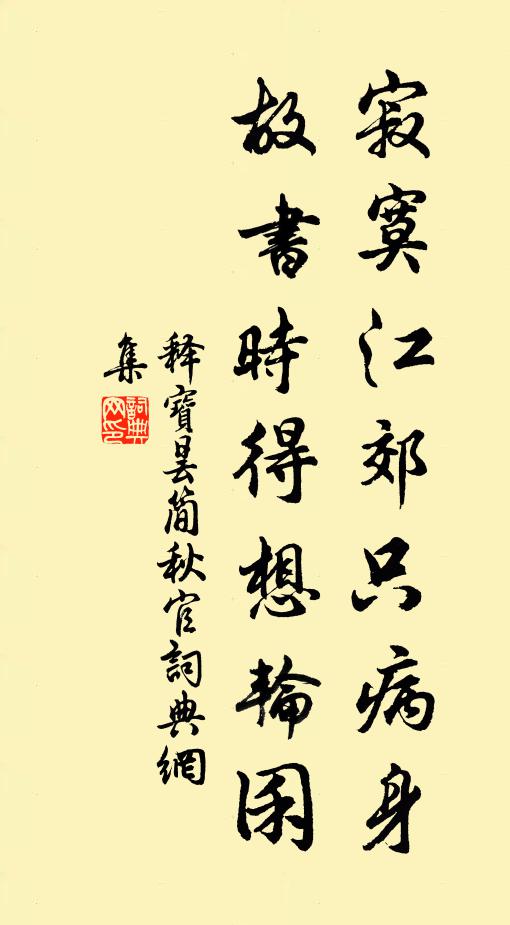 寂寞江郊只病身
故書時得想輪囷
释寶曇簡秋官詞典網
集
詞典
网印